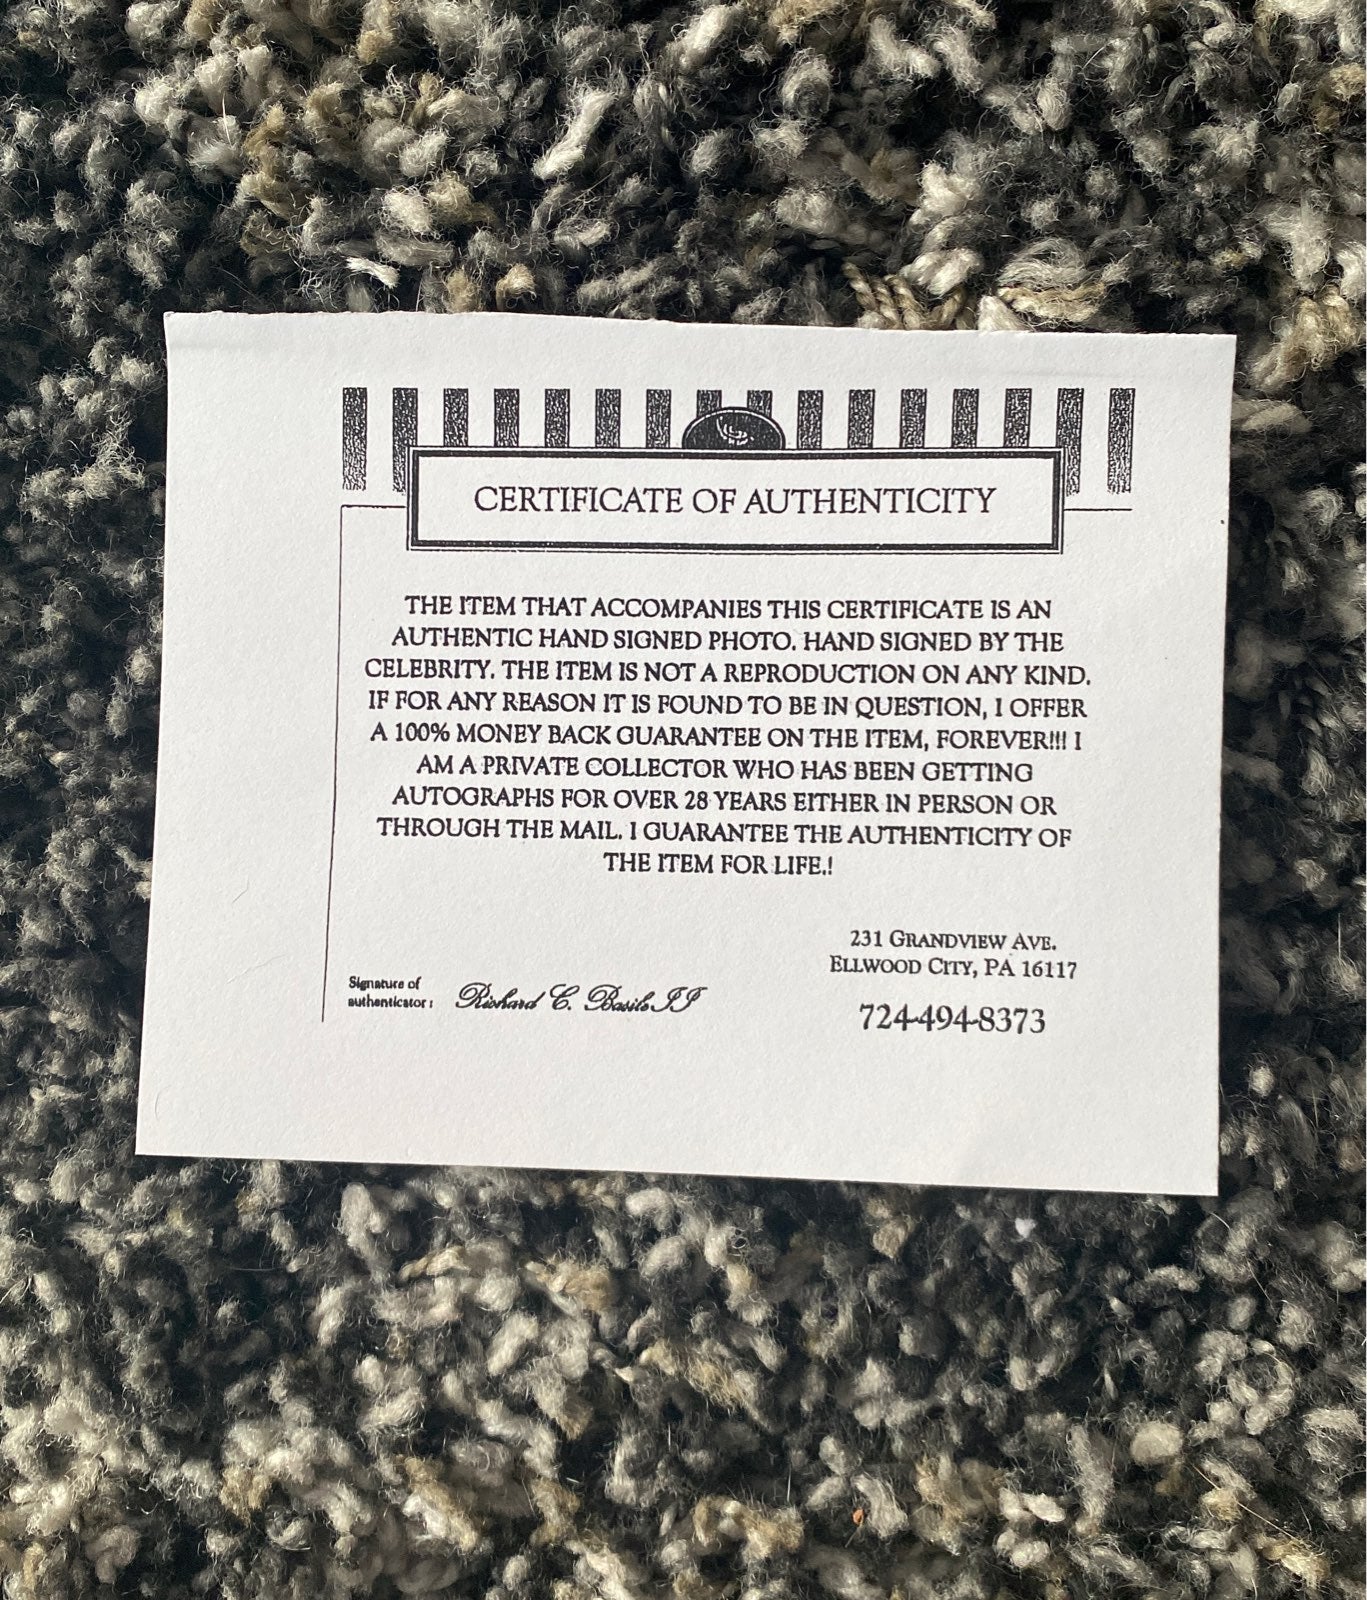 CERTIFICATE OF AUTHENTICITY
THE ITEM THAT ACCOMPANIES THIS CERTIFICATE IS AN
AUTHENTIC HAND SIGNED PHOTO. HAND SIGNED BY THE
CELEBRITY. THE ITEM IS NOT A REPRODUCTION ON ANY KIND.
IF FOR ANY REASON IT IS FOUND TO BE IN QUESTION, I OFFER
A 100% MONEY BACK GUARANTEE ON THE ITEM, FOREVER!!! I
AM A PRIVATE COLLECTOR WHO HAS BEEN GETTING
AUTOGRAPHS FOR OVER 28 YEARS EITHER IN PERSON OR
THROUGH THE MAIL. I GUARANTEE THE AUTHENTICITY OF
THE ITEM FOR LIFE.!
231 GRANDVIEW AVE.
ELLWOOD CITY, PA 16117
724-494-8373
Signature of
authenticator: Richard C. Basile II